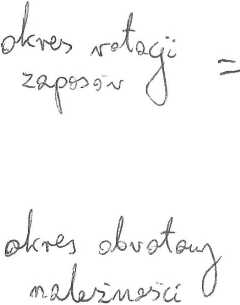 okres rotacji
zapasów =
okres obrotowy
należności